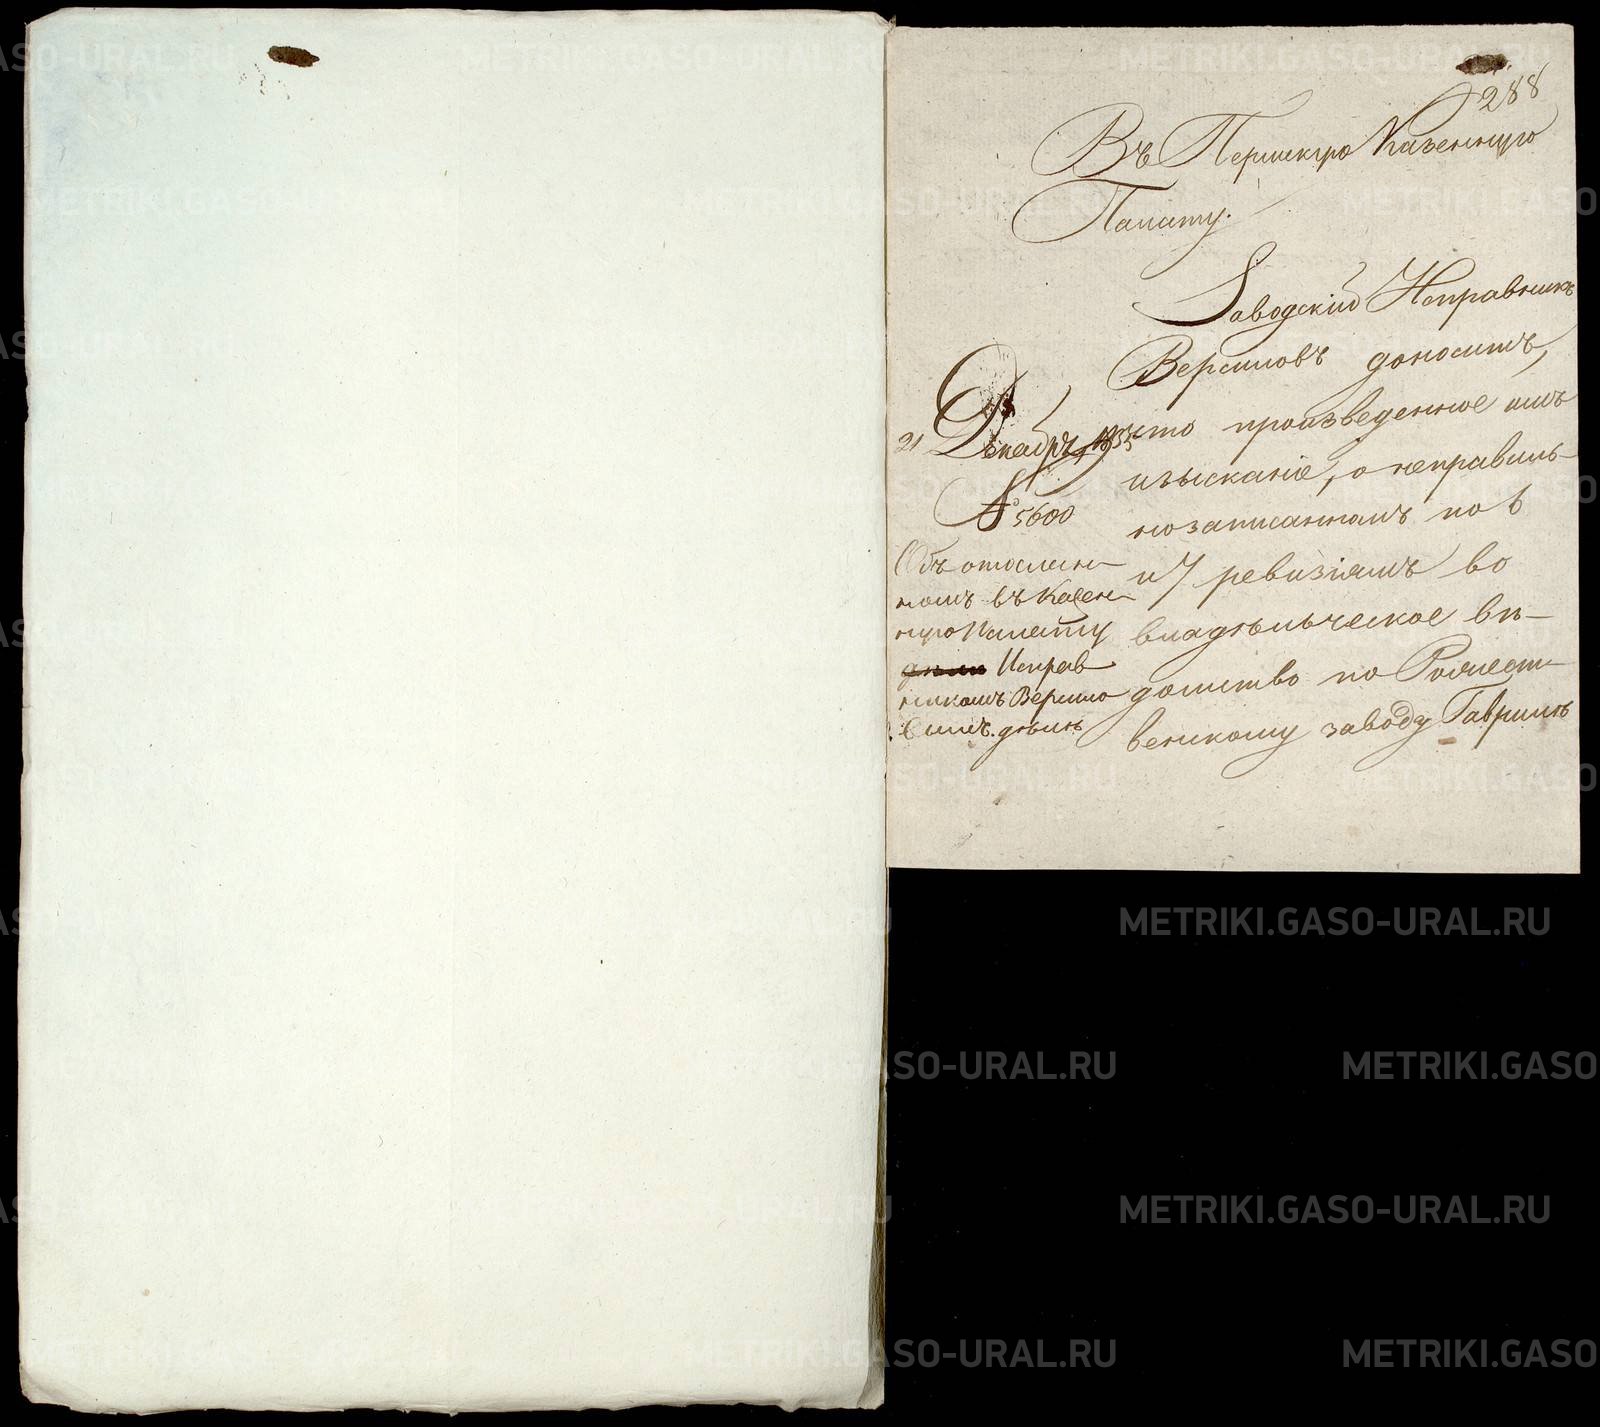 288
Въ Пермскую Казенную
Палату.
Заводский Исправникъ
Версиловъ доноситъ,
что произведенное имъ
изысканіе, о неправиль-
нозаписанномъ по 6
и 7 ревизіямъ во
владѣльческое вѣ-
домство по Рождест-
венскому заводу Гаврилѣ
21 Декабря 1835
№ 5600
Объ отослан-
номъ въ Казен-
ную Палату
Исправ
никомъ Версило
вымъ дѣлѣ
METRIKI.GASO-URAL.RU